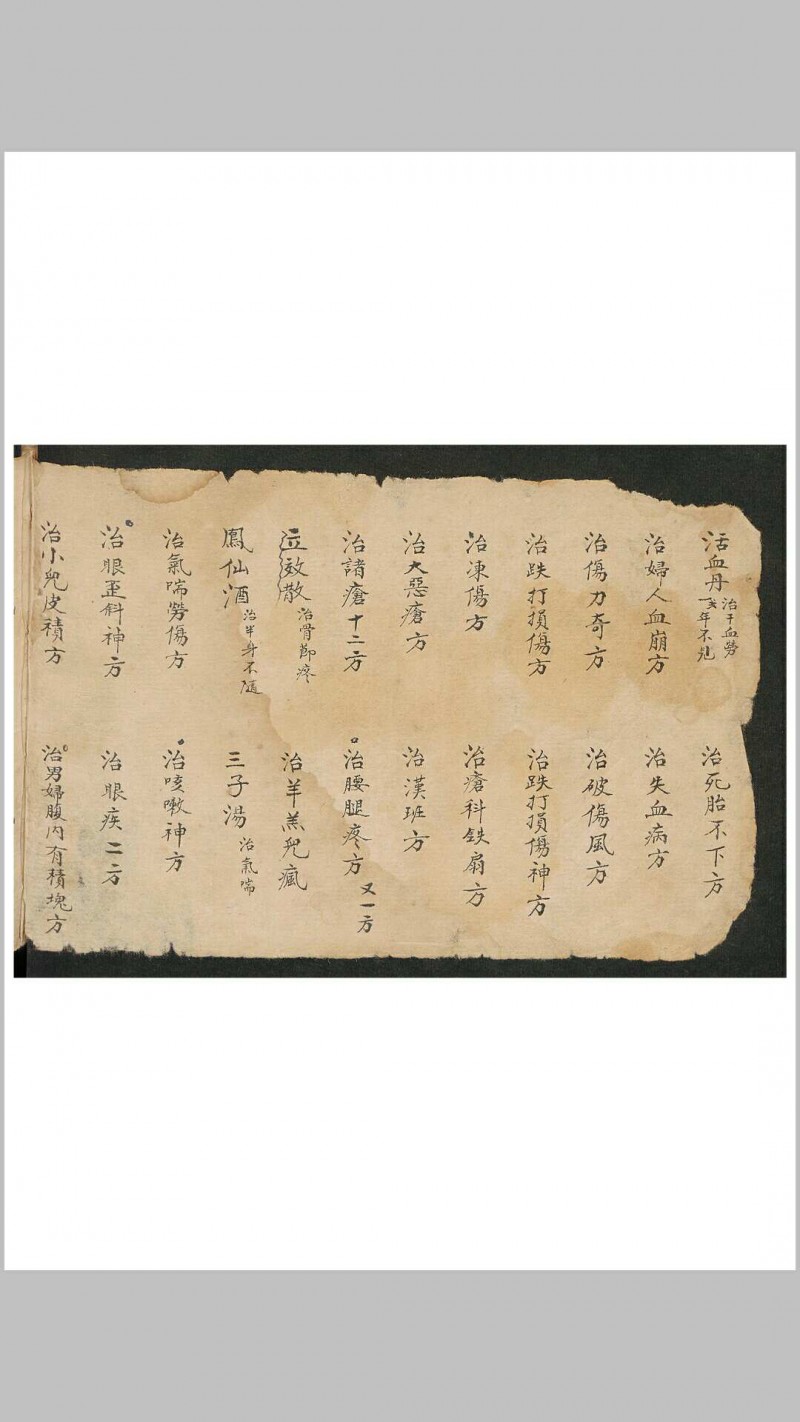 活血丹 治干血勞
年不
治死胎不下方
治婦人血崩方
治失血病方
治傷力奇方
治破傷風方
治跌打損傷方
治跌打損傷神方
治凍傷方
治瘡科鉄扇方
治大惡瘡方
治漢班方
治諸瘡十二方
治腰腿疼方 又一方
効散 治骨節疼
治羊羔兒瘋
鳳仙酒 治半身不隨
三子湯 治氣喘
治氣喘勞傷方
治咳嗽神方
治眼歪斜神方
治眼疾二方
治小兒皮積方
治男婦腹內有積塊方